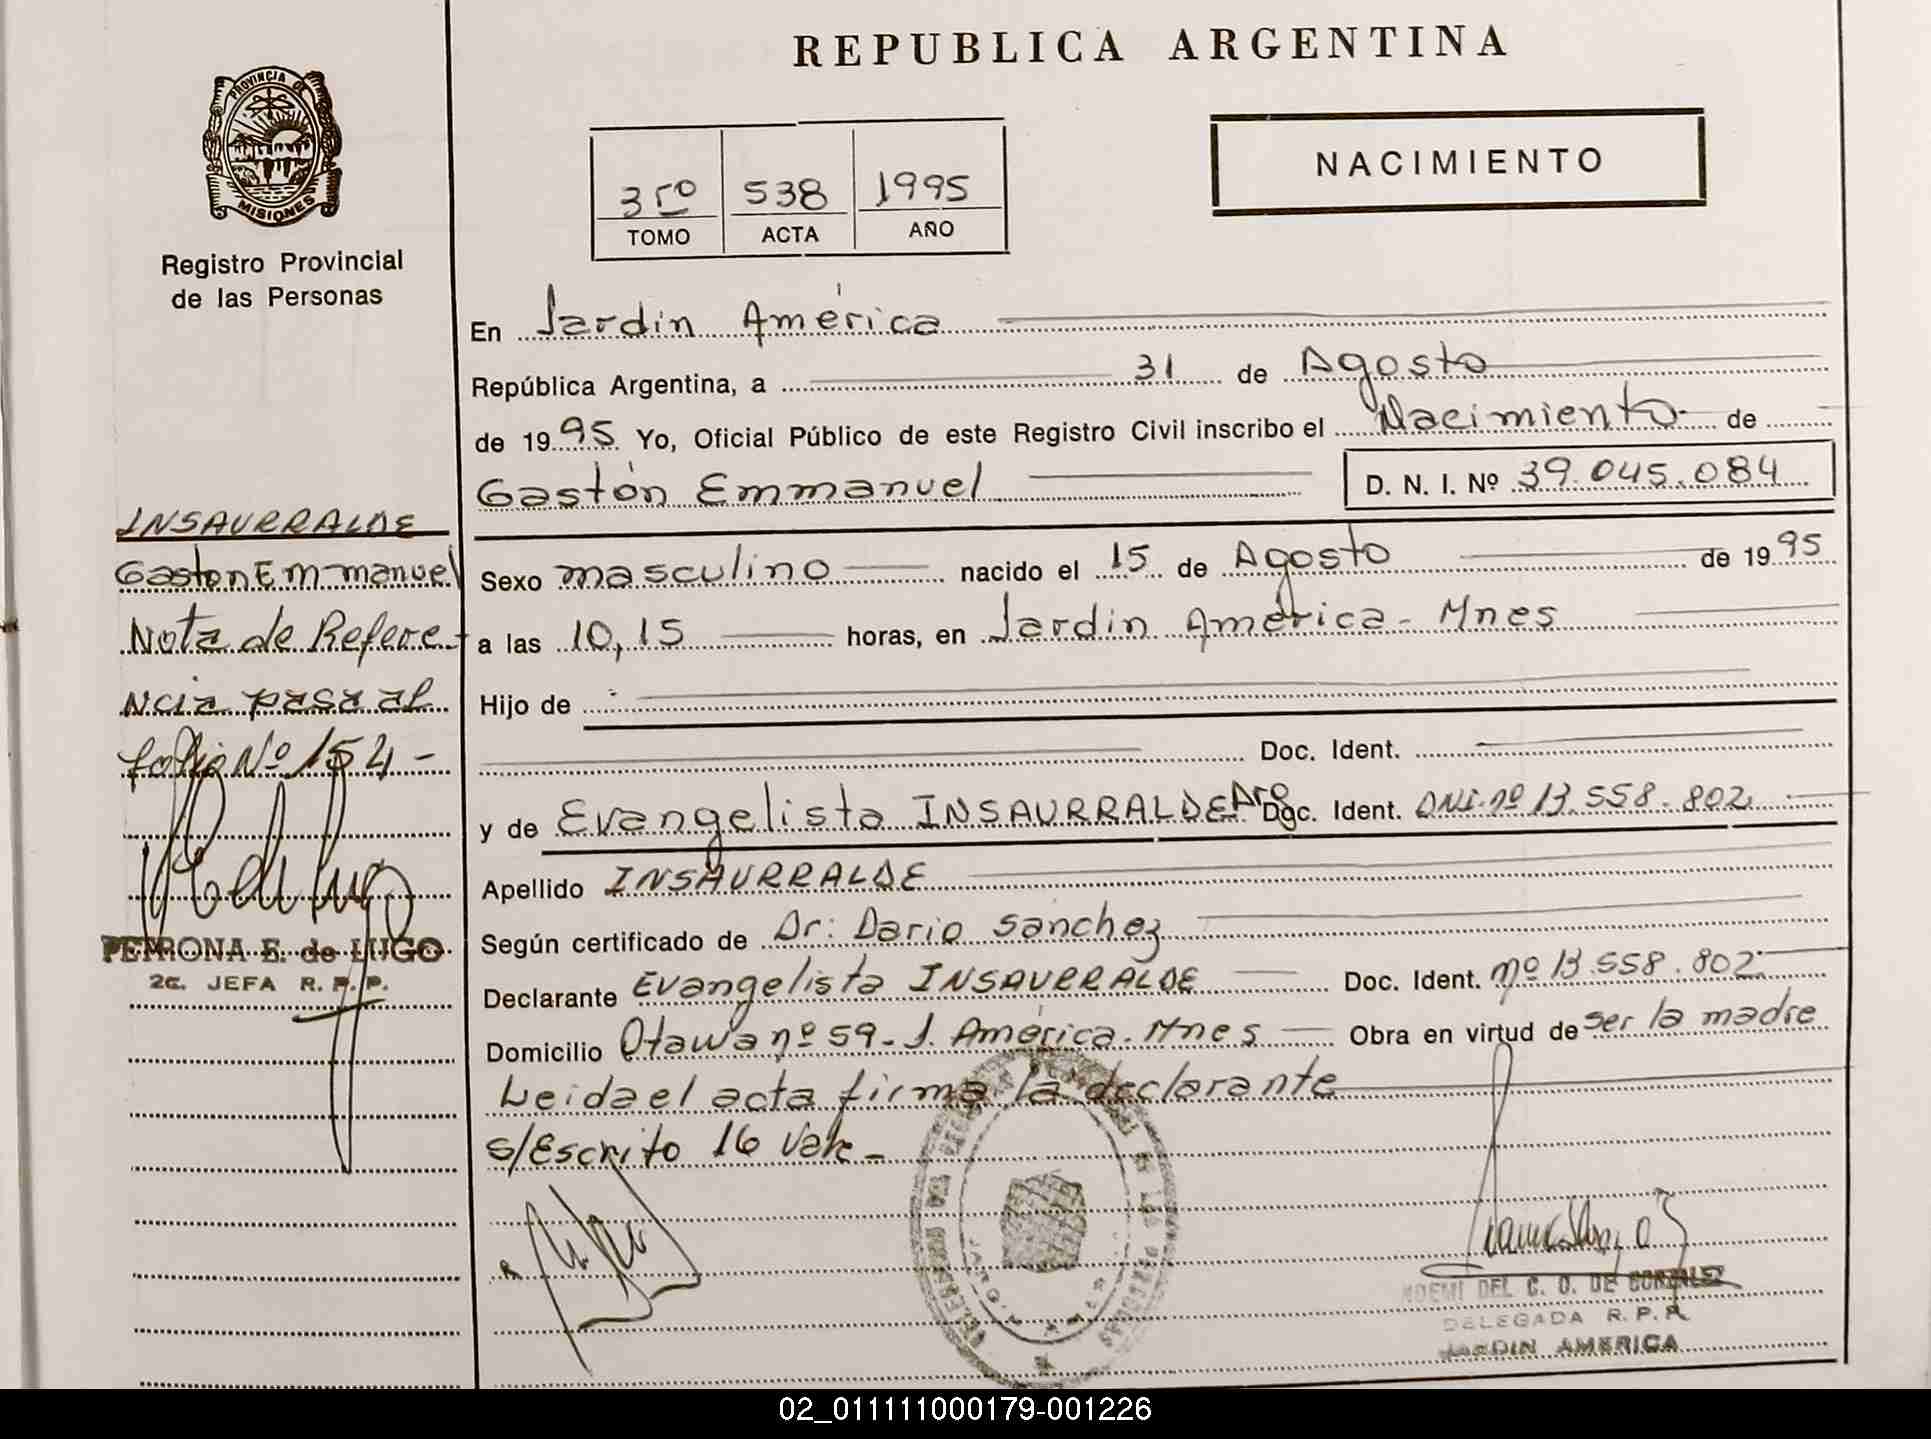 REPUBLICA ARGENTINA
PROVINCIA DE
MISIONES
Registro Provincial
de las Personas
3ro 538 1995
TOMO ACTA AÑO
NACIMIENTO
En Jardin América
República Argentina, a 31 de Agosto
de 1995 Yo, Oficial Público de este Registro Civil inscribo el Nacimiento de
Gastón Emmanuel D. N. I. Nº 39.045.084
Sexo masculino nacido el 15 de Agosto de 1995
a las 10,15 horas, en Jardin América - Mnes
Hijo de
Doc. Ident.
y de Evangelista INSAURRALDE Arg Doc. Ident. DNI. nº 13.558.802
Apellido INSAURRALDE
Según certificado de Dr: Dario Sanchez
Declarante Evangelista INSAURRALDE Doc. Ident. nº 13.558.802
Domicilio Otawa nº 59 - J. América - Mnes Obra en virtud de ser la madre
Leida el acta firma la declarante
s/Escrito 16 Vale -
INSAURRALDE
Gaston Emmanuel
Nota de Refere-
ncia pasa al
folio Nº 154 -
PETRONA E. de LUGO
2a. JEFA R. P. P.
NOEMI DEL C. O. DE GONZALEZ
DELEGADA R. P. P.
JARDIN AMERICA
02_011111000179-001226